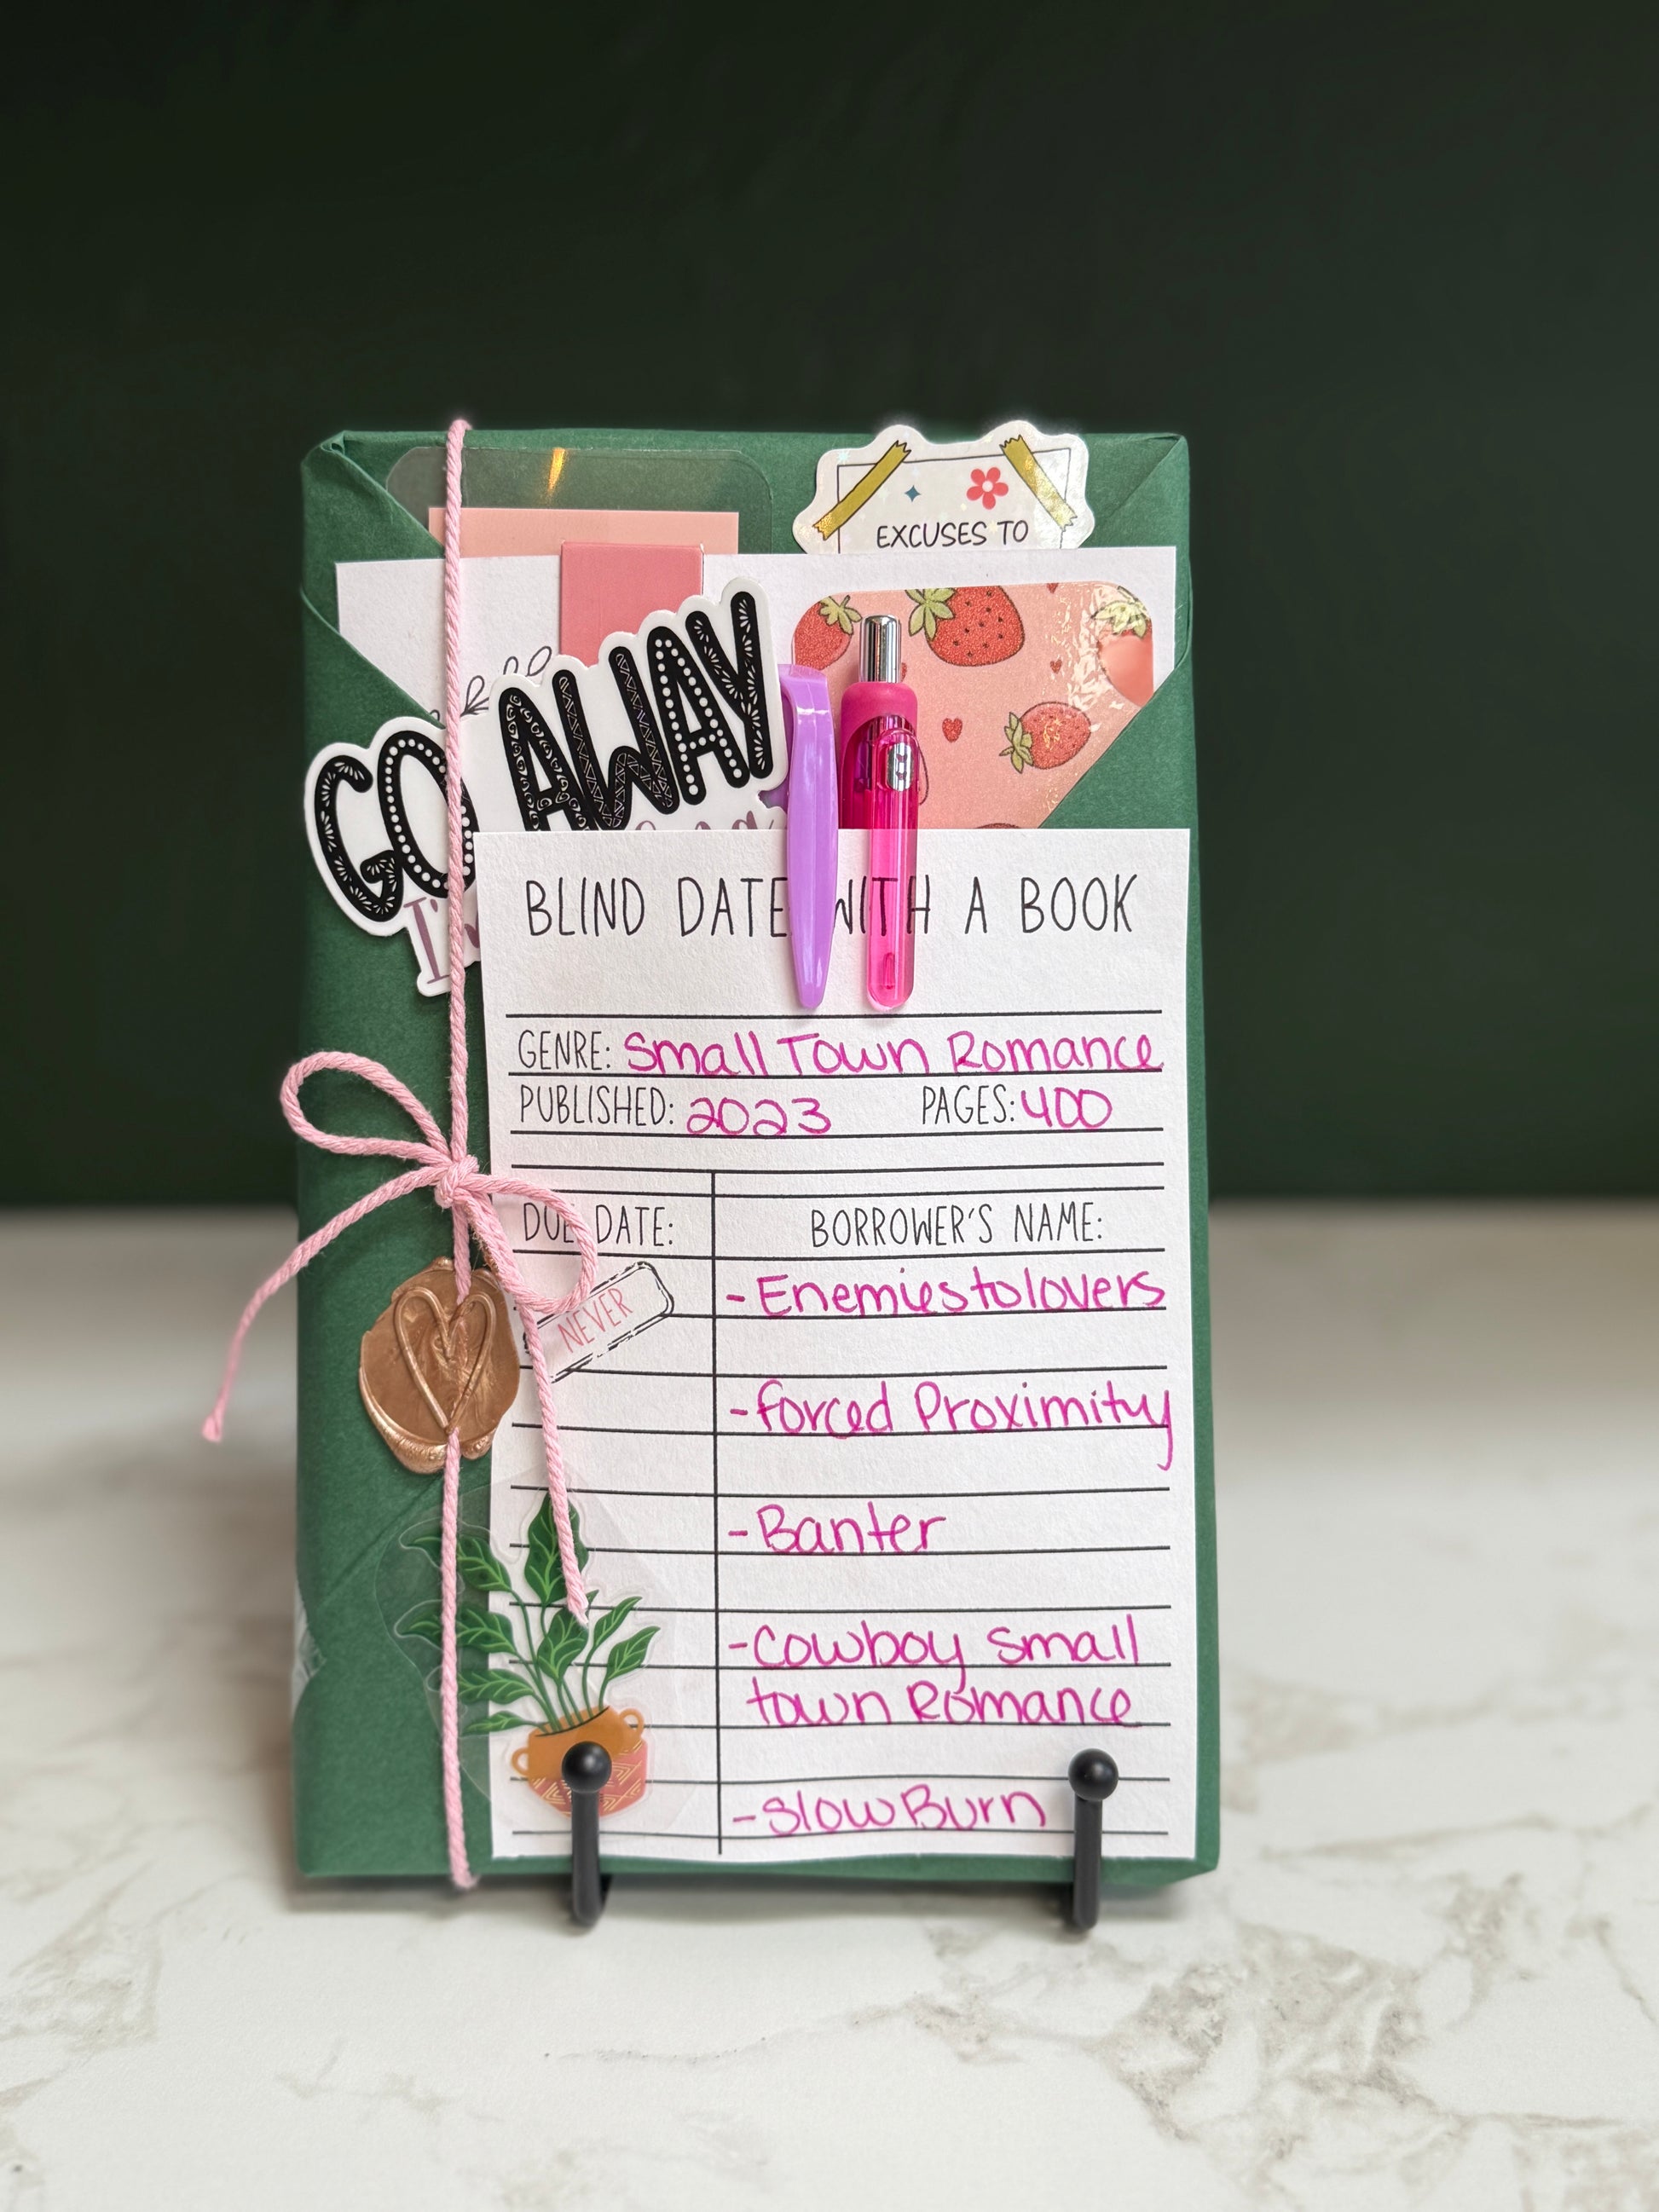 EXCUSES TO
GO AWAY
BLIND DATE WITH A BOOK
GENRE: Small Town Romance
PUBLISHED: 2023 PAGES: 400
DUE DATE: BORROWER'S NAME:
NEVER
- Enemies to lovers
- forced Proximity
- Banter
- Cowboy Small
town Romance
- Slow Burn